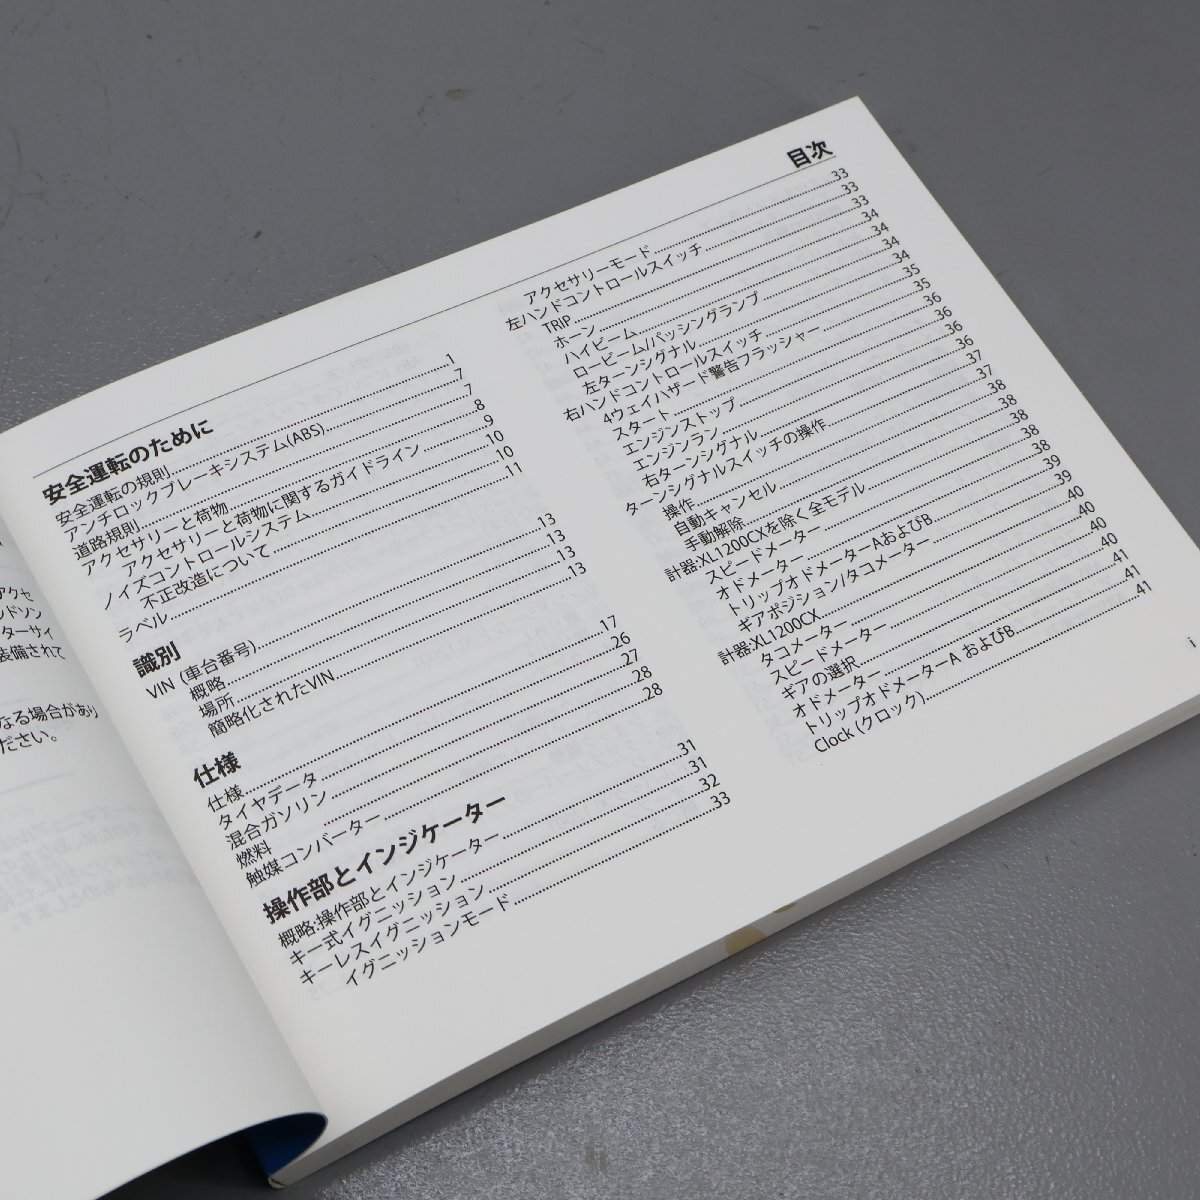 目次
安全運転のために
安全運転の規則 1
アンチロックブレーキシステム(ABS) 7
道路規則 7
アクセサリーと荷物 8
アクセサリーと荷物に関するガイドライン 9
ノイズコントロールシステム 10
不正改造について 10
ラベル 11
識別
VIN (車台番号) 13
概略 13
場所 13
簡略化されたVIN 13
仕様
仕様 17
タイヤデータ 26
混合ガソリン 27
燃料 28
触媒コンバーター 28
操作部とインジケーター
概略:操作部とインジケーター 31
キー式イグニッション 31
キーレスイグニッション 32
イグニッションモード 33
アクセサリーモード 33
左ハンドコントロールスイッチ 33
TRIP 33
ホーン 34
ハイビーム 34
ロービーム/パッシングランプ 34
左ターンシグナル 34
右ハンドコントロールスイッチ 35
4ウェイハザード警告フラッシャー 35
スタート 36
エンジンストップ 36
エンジンラン 36
右ターンシグナル 37
ターンシグナルスイッチの操作 37
操作 38
自動キャンセル 38
手動解除 38
計器:XL1200CXを除く全モデル 38
スピードメーター 38
オドメーター
トリップオドメーターAおよびB
ギアポジション/タコメーター 39
計器:XL1200CX 40
タコメーター 40
スピードメーター 40
ギアの選択 40
オドメーター 41
トリップオドメーターA およびB 41
Clock (クロック) 41
i
アクセ
ンドソン
ターサイ
装備されて
なる場合があり
ださい。